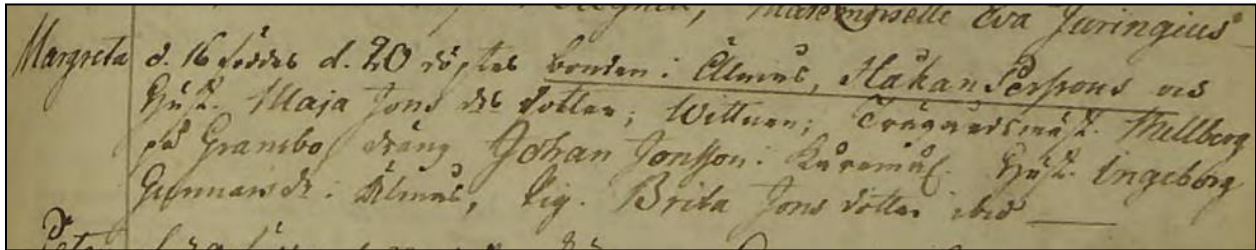 Mademoiselle Eva Juringius
Margreta d. 16 föddes d. 20 döptes bonden i Älmås, Håkan Perssons och
Hust. Maja Jons dr dotter; Wittnen; Trägårdsmäst. Thellberg
på Gransbo, dräng Johan Jonsson i Hust. Ingeborg
Gunnarsdr. i Älmås, Pig. Brita Jons dotter ibid